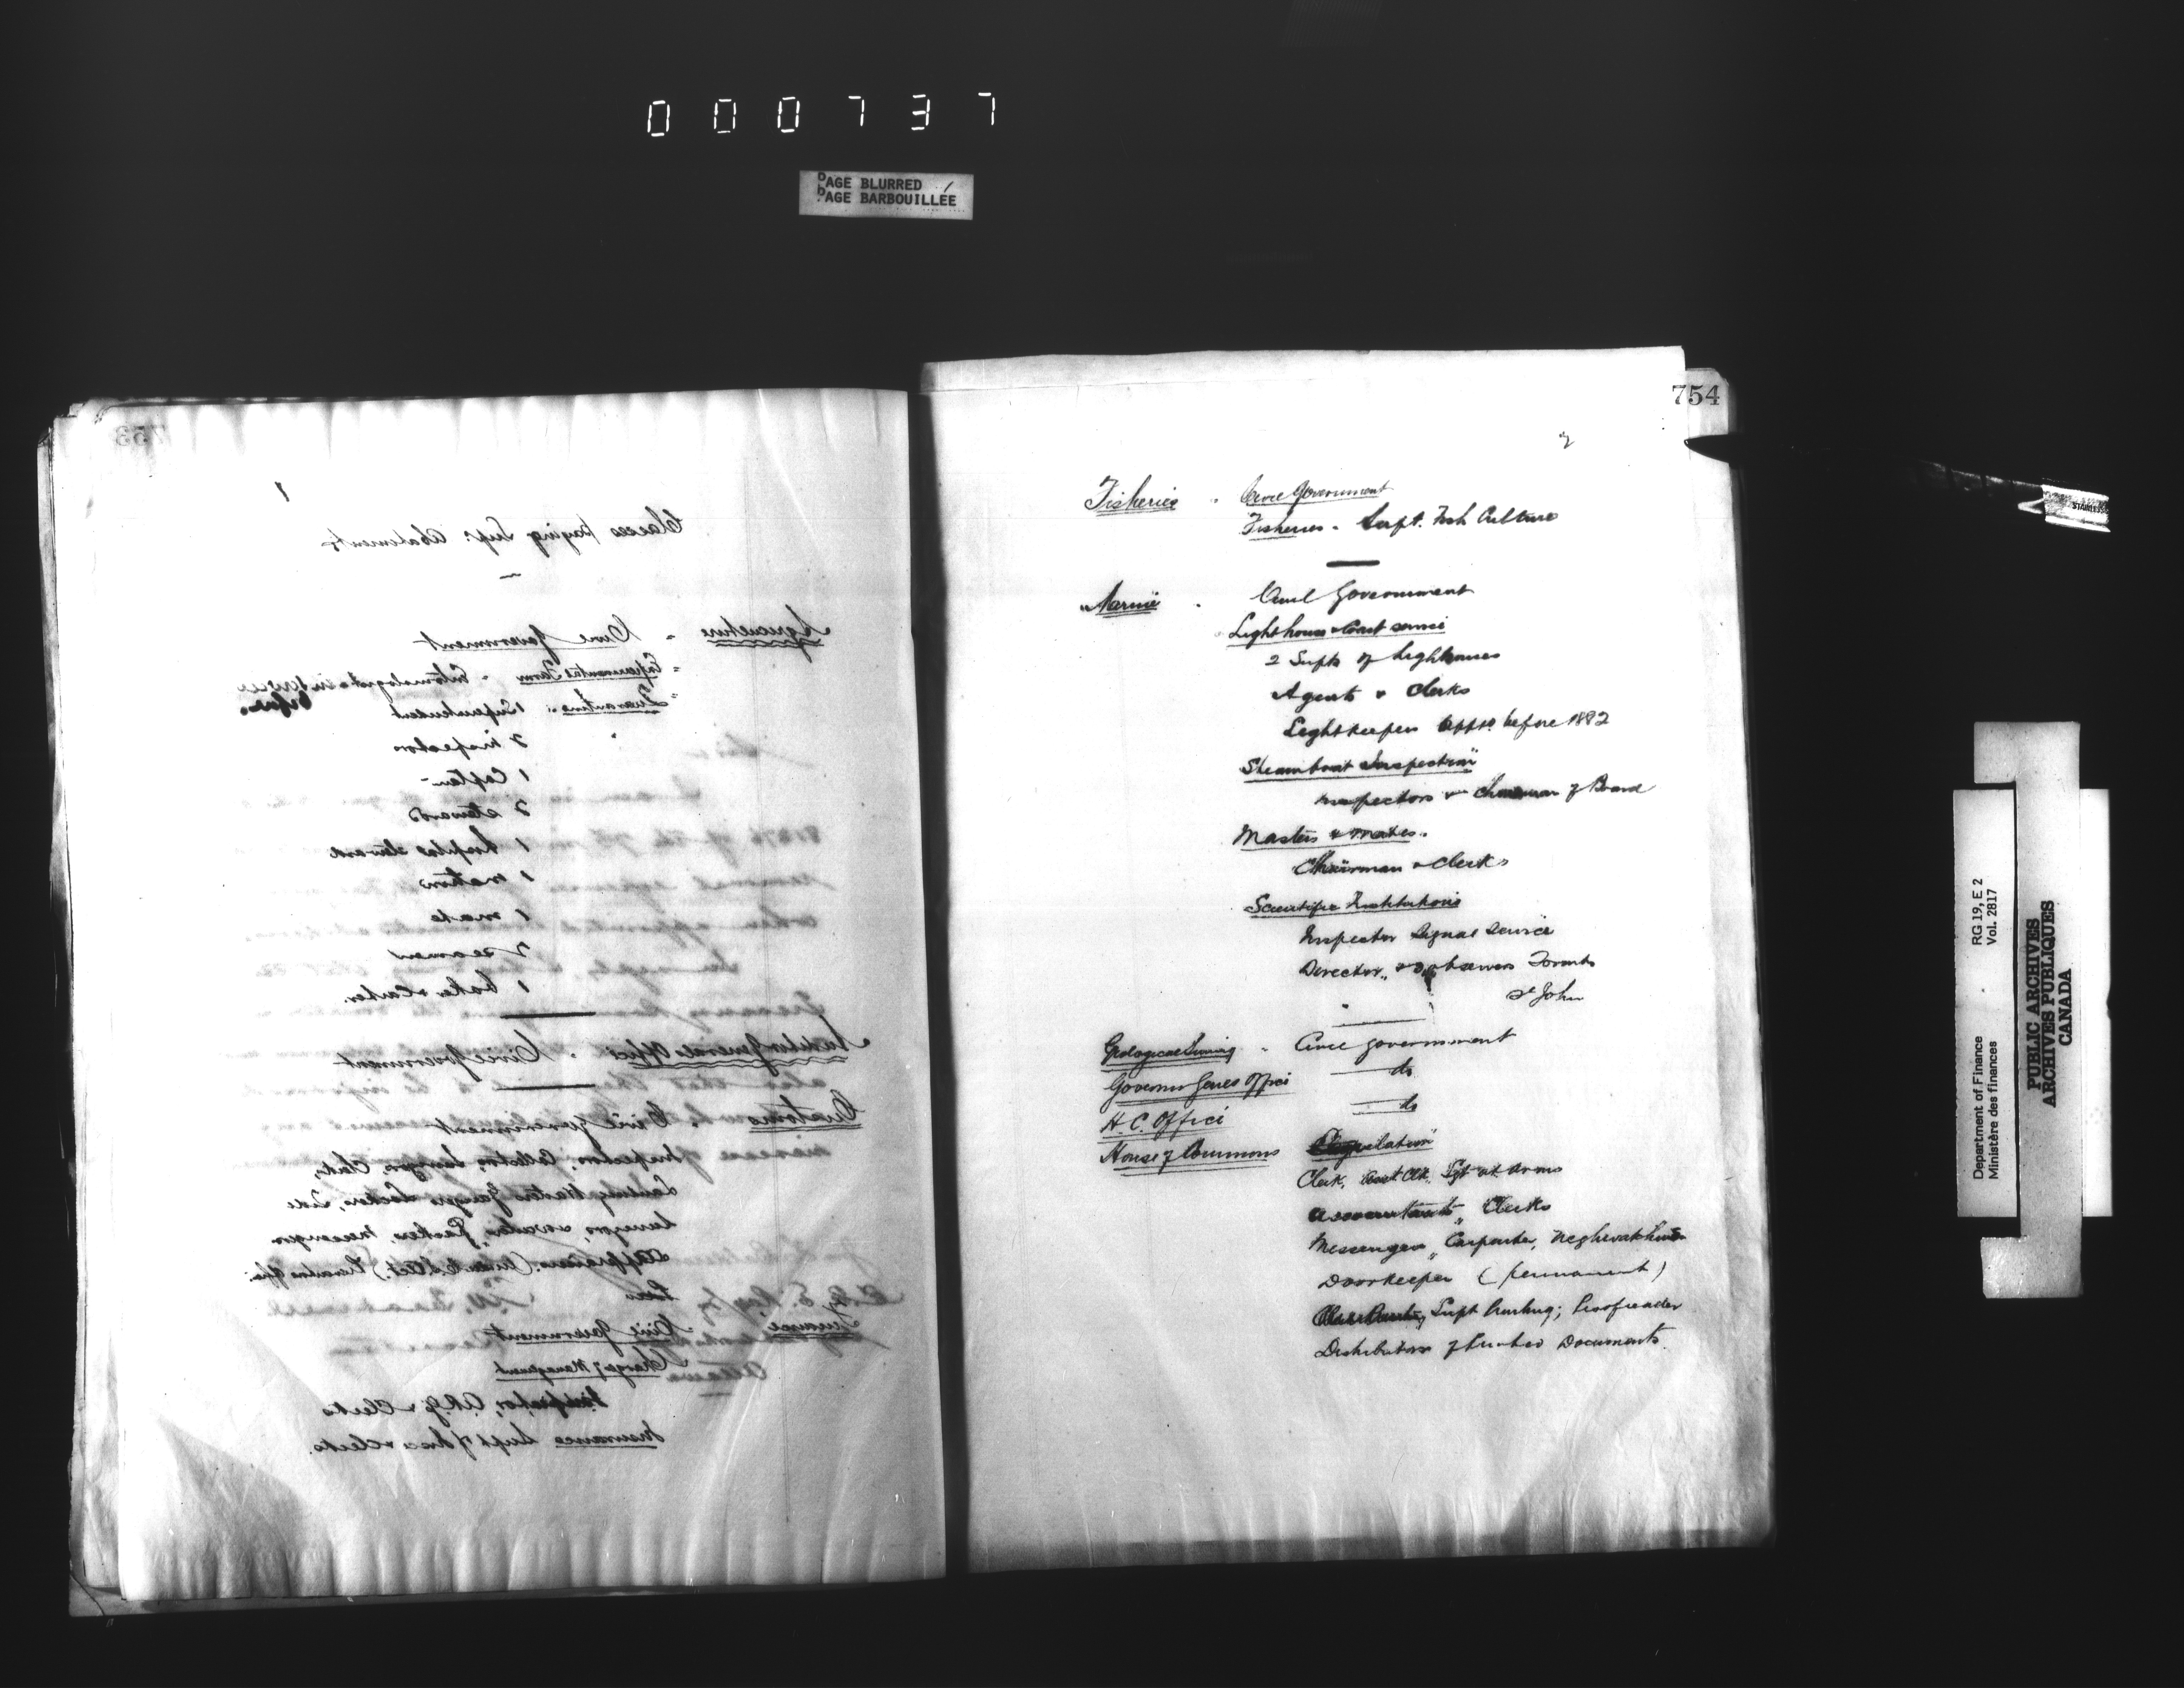 000737
PAGE BLURRED
PAGE BARBOUILLÉE
753
1
Classes paying Supn Abatements
Agriculture - Civil Government
- Experimental Farm - Entomologist in service before
- Quarantine: 1 Superintendent
2 inspectors
1 Captain
2 stewards
1 hospital steward
1 matron
1 mate
2 seamen
1 baker & carter.
Auditor Generals Office - Civil Government
Customs - Civil Government
Inspectors, Collectors, Surveyors, Clerks,
Landing Waiters Gaugers Lockers, Tide
Surveyors, Packers, Messengers
Appraisers.
Finance
Civil Government
Charges of Management
Inspector, A.R.G. & Clerks
Insurance Supt of Insce & Clerks.
754
2
Fisheries - Civil Government
Fisheries - Supt. Fish Culture
Marine - Civil Government
Lighthouse & Coast service
2 Supts of Lighthouses
Agents & Clerks
Lightkeepers apptd before 1882
Steamboat Inspection
Inspectors & Chairman of Board
Masters & Mates.
Chairman & Clerks
Scientific Institutions
Inspector Signal Service
Director, & observers Toronto
St John
Geological Survey - Civil Government
Governor Genls Office do
H. C. Office do
House of Commons Legislation
Clerk, Asst. Clk. Sgt at arms
Accountants Clerks
Messengers Carpenter, Nightwatchmen
Doorkeeper (permanent)
Supt Printing; Proofreader
Distributors of Printed Documents.
Department of Finance
Ministère des finances
RG 19, E 2
Vol. 2817
PUBLIC ARCHIVES
ARCHIVES PUBLIQUES
CANADA